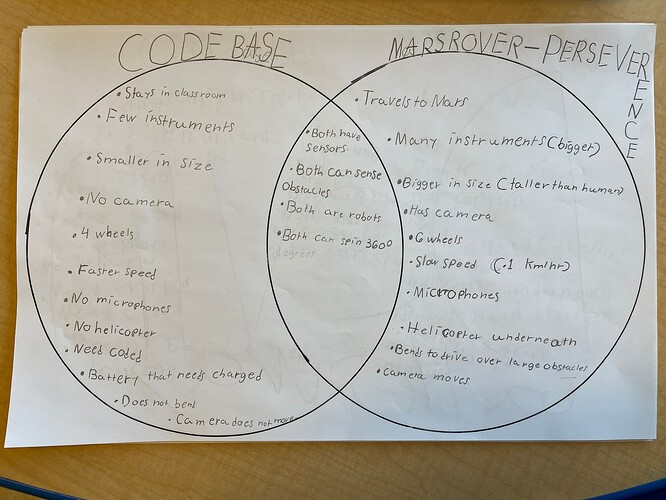 CODE BASE
• Stays in classroom
• Few instruments
• Smaller in size
• No camera
• 4 wheels
• Faster speed
• No microphones
• No helicopter
• Need coded
• Battery that needs charged
• Does not bend
• Camera does not move
• Both have
sensors
• Both can sense
obstacles
• Both are robots
• Both can spin 360°
degrees
MARSROVER-PERSEVERENCE
• Travels to Mars
• Many instruments (bigger)
• Bigger in size (taller than human)
• Has camera
• 6 wheels
• Slow speed (.1 km/hr)
• Microphones
• Helicopter underneath
• Bends to drive over large obstacles
• Camera moves